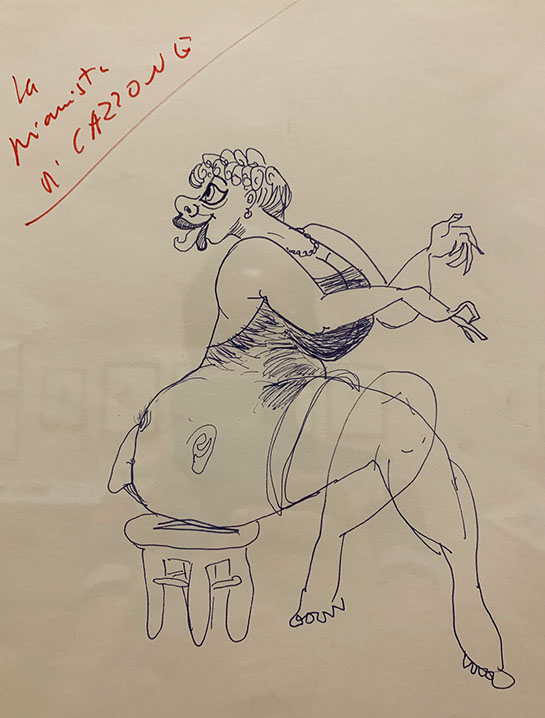 La
pianista
n' CAZZONE